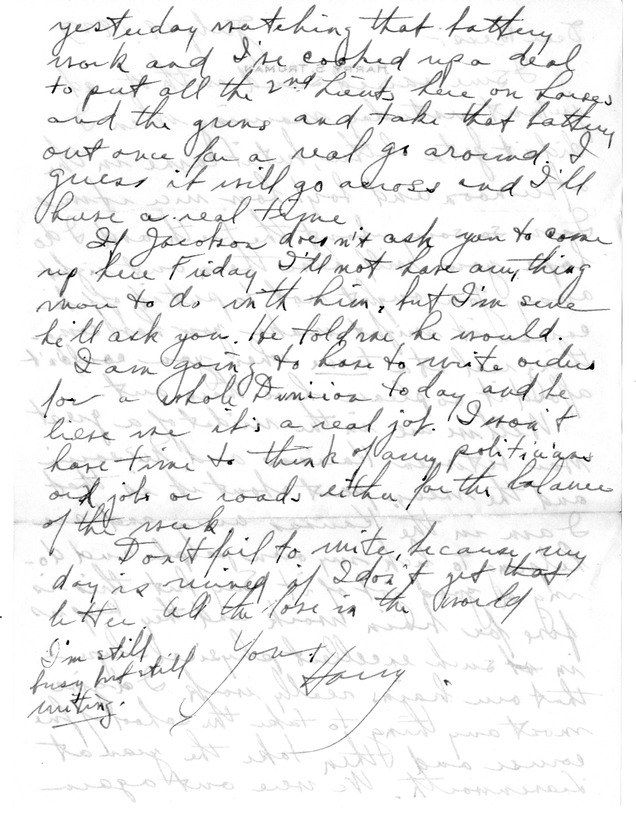 yesterday watching that battery
work and I've cooked up a deal
to put all the 2nd Lieuts here on horses
and the guns and take that battery
out once for a real go around. I
guess it will go across and I'll
have a real time.
If Jacobson doesn't ask you to come
up here Friday I'll not have any thing
more to do with him, but I'm sure
he'll ask you. He told me he would.
I am going to have to write orders
for a whole Division today and be
lieve me it's a real job. I won't
have time to think of any politicians
or jobs or roads either for the balance
of the week.
Don't fail to write, because my
day is ruined if I don't get that
letter. All the love in the world
Your
Harry
I'm still
busy but still
writing.